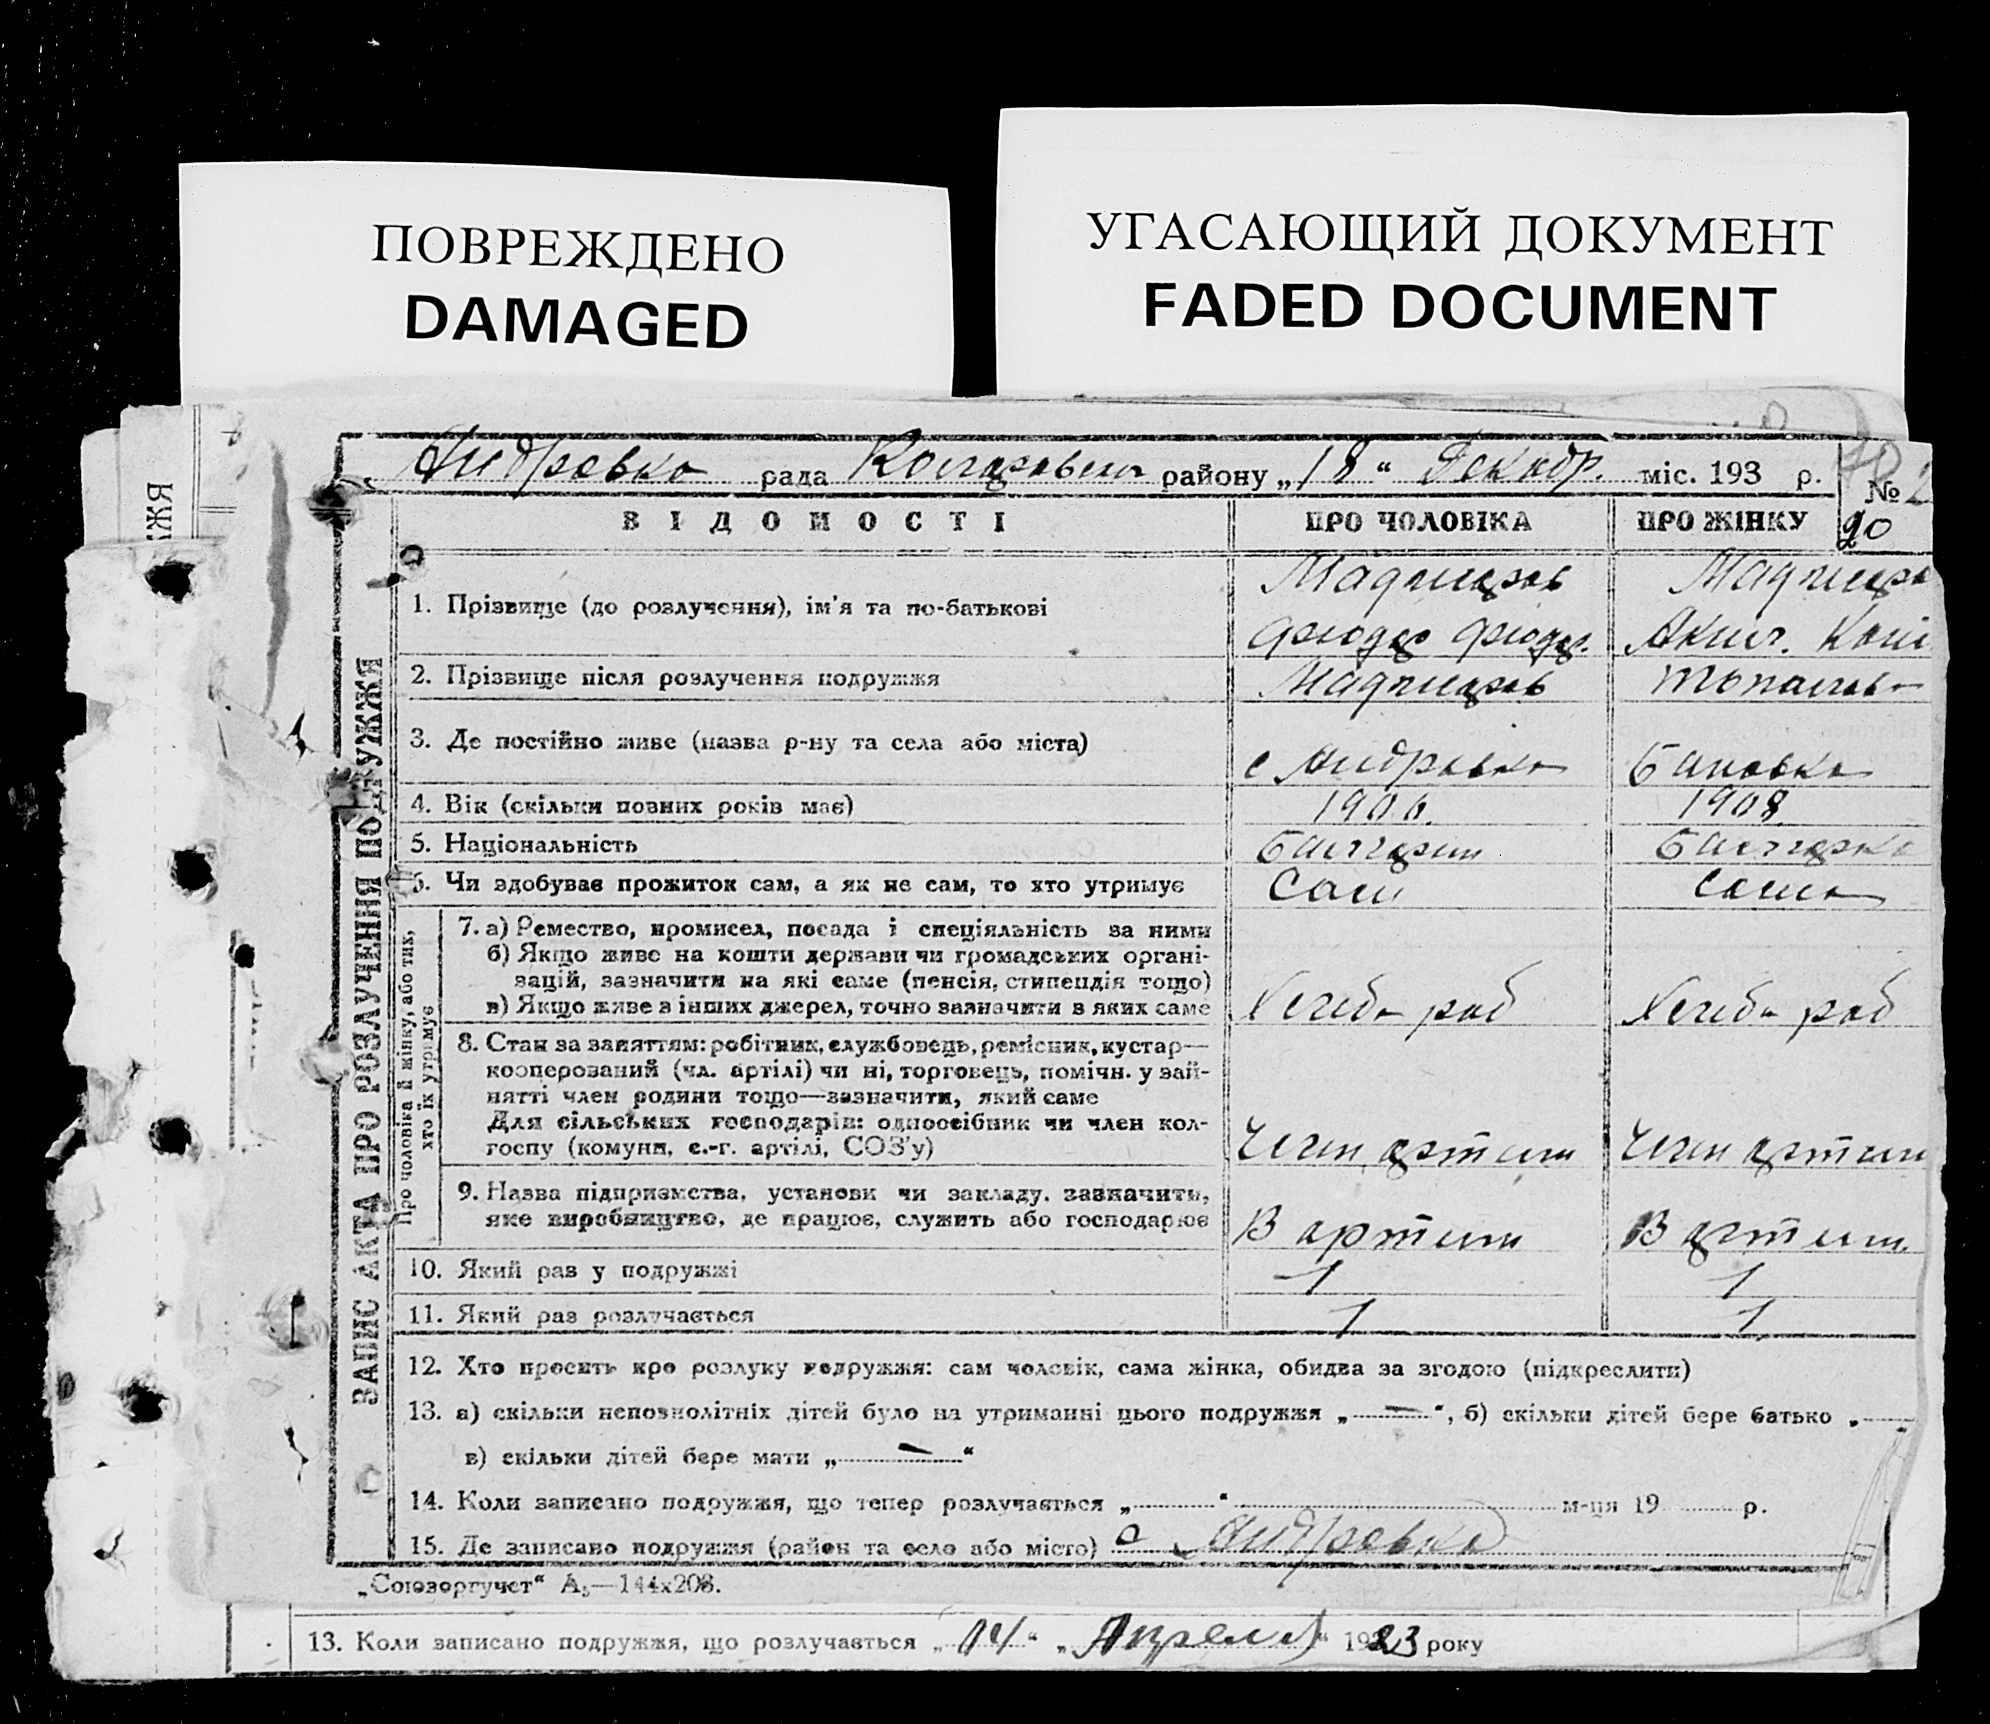 ПОВРЕЖДЕНО
DAMAGED
УГАСАЮЩИЙ ДОКУМЕНТ
FADED DOCUMENT
Андровка рада района „18“ Декабр. міс. 193 р.
№
20
ЗАПИС АКТА ПРО РОЗЛУЧЕННЯ ПОДРУЖЖЯ
ВІДОМОСТІ ПРО ЧОЛОВІКА ПРО ЖІНКУ
1. Прізвище (до розлучення), ім'я та по-батькові
2. Прізвище після розлучення подружжя
3. Де постійно живе (назва р-ну та села або міста) с Андровка Бановка
4. Вік (скільки повних років має) 1906. 1908
5. Національність Балгарин Балгарка
6. Чи здобуває прожиток сам, а як не сам, то хто утримує Сам сама
Про чоловіка й жінку, або тих, хто їх утримує
7. а) Ремество, промисел, посада і спеціяльність за ними
б) Якщо живе на кошти держави чи громадських органі-
зацій, зазначити на які саме (пенсія, стипендія тощо)
в) Якщо живе з інших джерел, точно зазначити з яких саме Хлеба роб Хлеба роб
8. Стан за заняттям: робітник, службовець, ремісник, кустар—
кооперований (чл. артілі) чи ні, торговець, помічн. у зай-
нятті член родини тощо—зазначити, який саме
Для сільських господарів: одноосібник чи член кол-
госпу (комуни, с.-г. артілі, СОЗ'у) Член артели Член артели
9. Назва підприємства, установи чи закладу, зазначити,
яке виробництво, де працює, служить або господарює В артели В артели
10. Який раз у подружжі 1 1
11. Який раз розлучається 1 1
12. Хто просить про розлуку подружжя: сам чоловік, сама жінка, обидва за згодою (підкреслити)
13. а) скільки неповнолітніх дітей було на утриманні цього подружжя „—“, б) скільки дітей бере батько „
в) скільки дітей бере мати „—“
14. Коли записано подружжя, що тепер розлучається „ “ м-ця 19 р.
15. Де записано подружжя (район та село або місто) с Андровка
„Союзоргучет“ А₅—144х208.
13. Коли записано подружжя, що розлучається „14“ „Апреля“ 1923 року